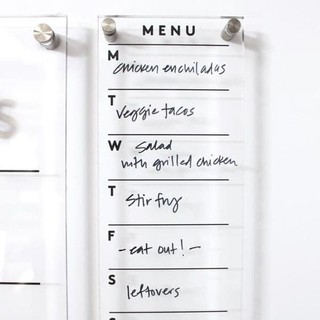 MENU
M
chicken enchiladas
T
veggie tacos
W
salad
with grilled chicken
T
stir fry
F
-eat out!-
S
leftovers